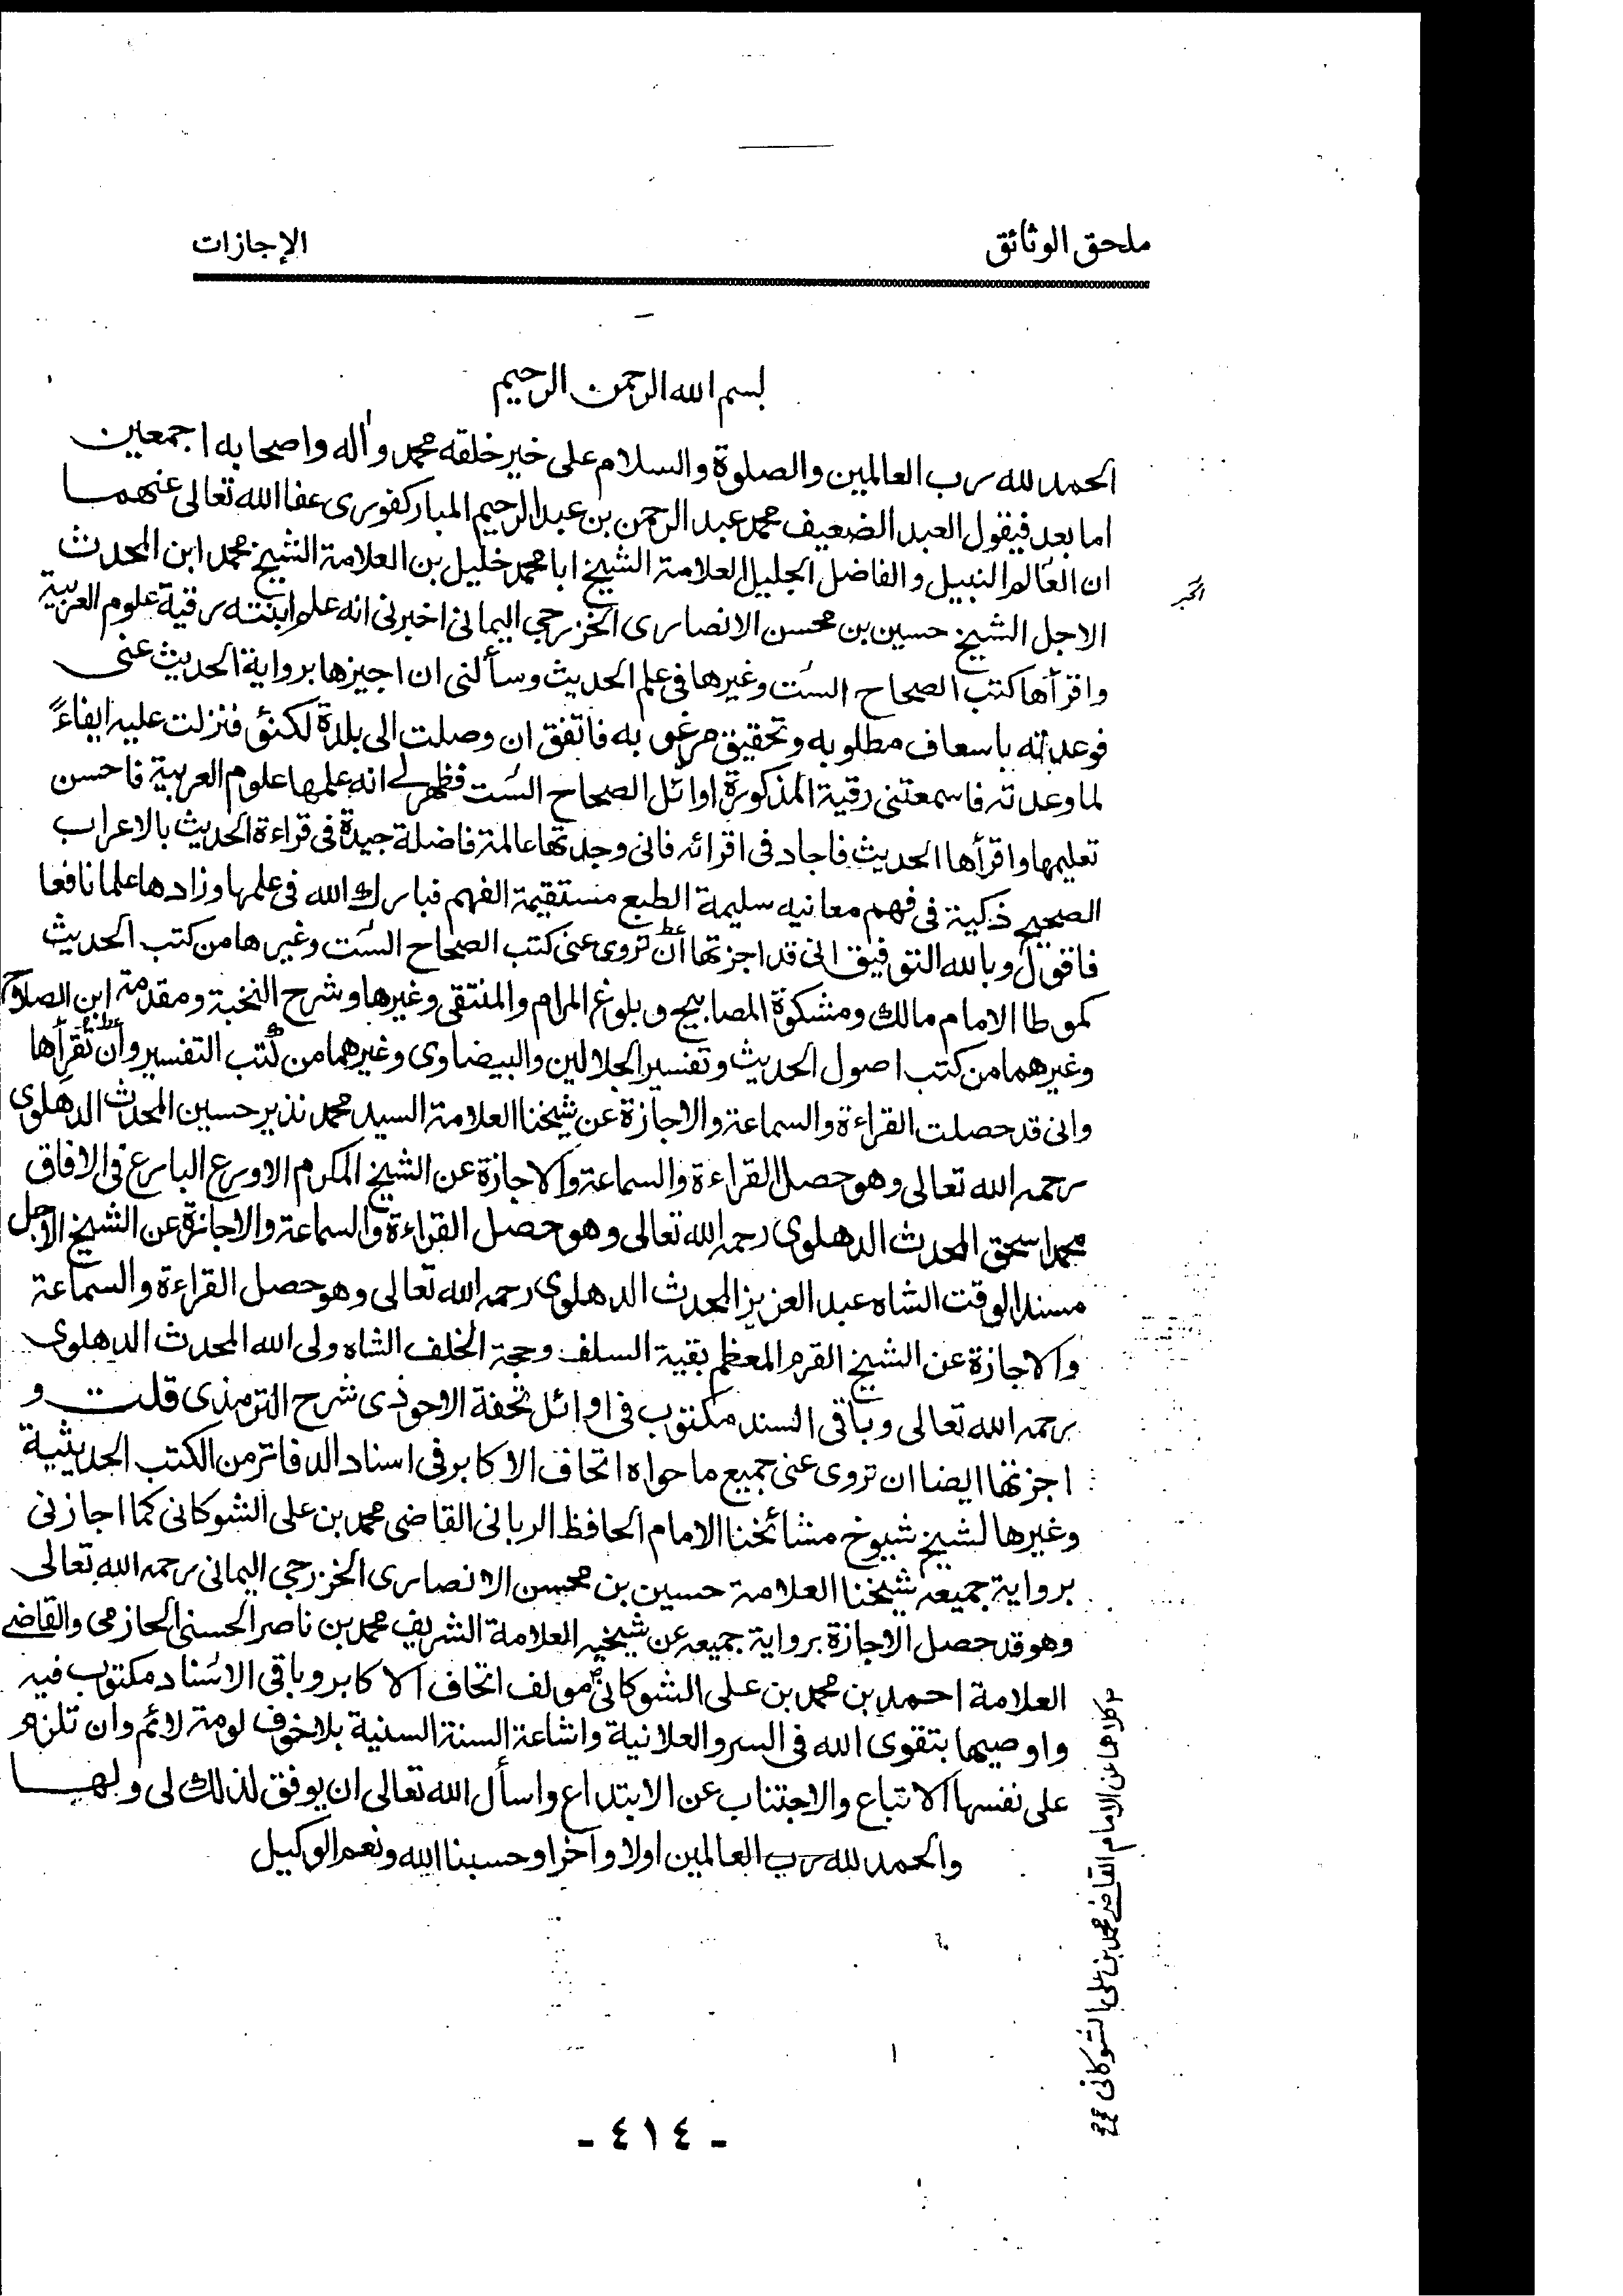 ملحق الوثائق
الإجازات
بسم الله الرحمن الرحيم
الحمد لله رب العالمين والصلوة والسلام على خير خلقه محمد وآله واصحابه اجمعين
اما بعد فيقول العبد الضعيف محمد عبد الرحمن بن عبد الرحيم المباركفورى عفا الله تعالى عنهما
ان العالم النبيل والفاضل الجليل العلامة الشيخ ابا محمد خليل بن العلامة الشيخ محمد ابن المحدث
الاجل الشيخ حسين بن محسن الانصارى الخزرجي اليمانى اخبرنى انه علم ابنته رقية علوم العربية
واقرأها كتب الصحاح الست وغيرها فى علم الحديث وسألنى ان اجيزها برواية الحديث عنى
فوعدته باسعاف مطلوبه وتحقيق مرغوبه فاتفق ان وصلت الى بلدة لكنئو فنزلت عليه ايفاءً
لما وعدته فاسمعتنى رقية المذكورة اوائل الصحاح الست فظهر لى انه علمها علوم العربية فاحسن
تعليمها واقرأها الحديث فاجاد فى اقرائه فانى وجدتها عالمة فاضلة جيدة فى قراءة الحديث بالاعراب
الصحيح ذكية فى فهم معانيه سليمة الطبع مستقيمة الفهم فبارك الله فى علمها وزادها علما نافعا
فاقول وبالله التوفيق انى قد اجزتها أن تروى عنى كتب الصحاح الست وغيرها من كتب الحديث
كموطا الامام مالك ومشكوة المصابيح وبلوغ المرام والمنتقى وغيرها وشرح النخبة ومقدمة ابن الصلاح
وغيرهما من كتب اصول الحديث وتفسير الجلالين والبيضاوى وغيرهما من كتب التفسير وأن تقرأها
وانى قد حصلت القراءة والسماعة والاجازة عن شيخنا العلامة السيد محمد نذير حسين المحدث الدهلوى
رحمه الله تعالى وهو حصل القراءة والسماعة والاجازة عن الشيخ المكرم الاورع البارع فى الافاق
محمد اسحق المحدث الدهلوى رحمه الله تعالى وهو حصل القراءة والسماعة والاجازة عن الشيخ الاجل
مسند الوقت الشاه عبد العزيز المحدث الدهلوى رحمه الله تعالى وهو حصل القراءة والسماعة
والاجازة عن الشيخ القرم المعظم بقية السلف وحجة الخلف الشاه ولى الله المحدث الدهلوى
رحمه الله تعالى وباقى السند مكتوب فى اوائل تحفة الاحوذى شرح الترمذى قلت و
اجزتها ايضا ان تروى عنى جميع ما حواه اتحاف الاكابر فى اسناد الدفاتر من الكتب الحديثية
وغيرها لشيخ شيوخ مشائخنا الامام الحافظ الربانى القاضى محمد بن على الشوكانى كما اجازنى
برواية جميعه شيخنا العلامة حسين بن محسن الانصارى الخزرجى اليمانى رحمه الله تعالى
وهو قد حصل الاجازة برواية جميعه عن شيخيه العلامة الشريف محمد بن ناصر الحسنى الحازمى والقاضى
العلامة احمد بن محمد بن على الشوكانى مولف اتحاف الاكابر وباقى الاسناد مكتوب فيه
واوصيها بتقوى الله فى السر والعلانية واشاعة السنة السنية بلا خوف لومة لائم وان تلزم
على نفسها الاتباع والاجتناب عن الابتداع واسأل الله تعالى ان يوفق لذلك لى ولها
والحمد لله رب العالمين اولا وآخرا وحسبنا الله ونعم الوكيل
كلاهما عن الامام القاضى محمد بن على الشوكانى
- ٤١٤ -